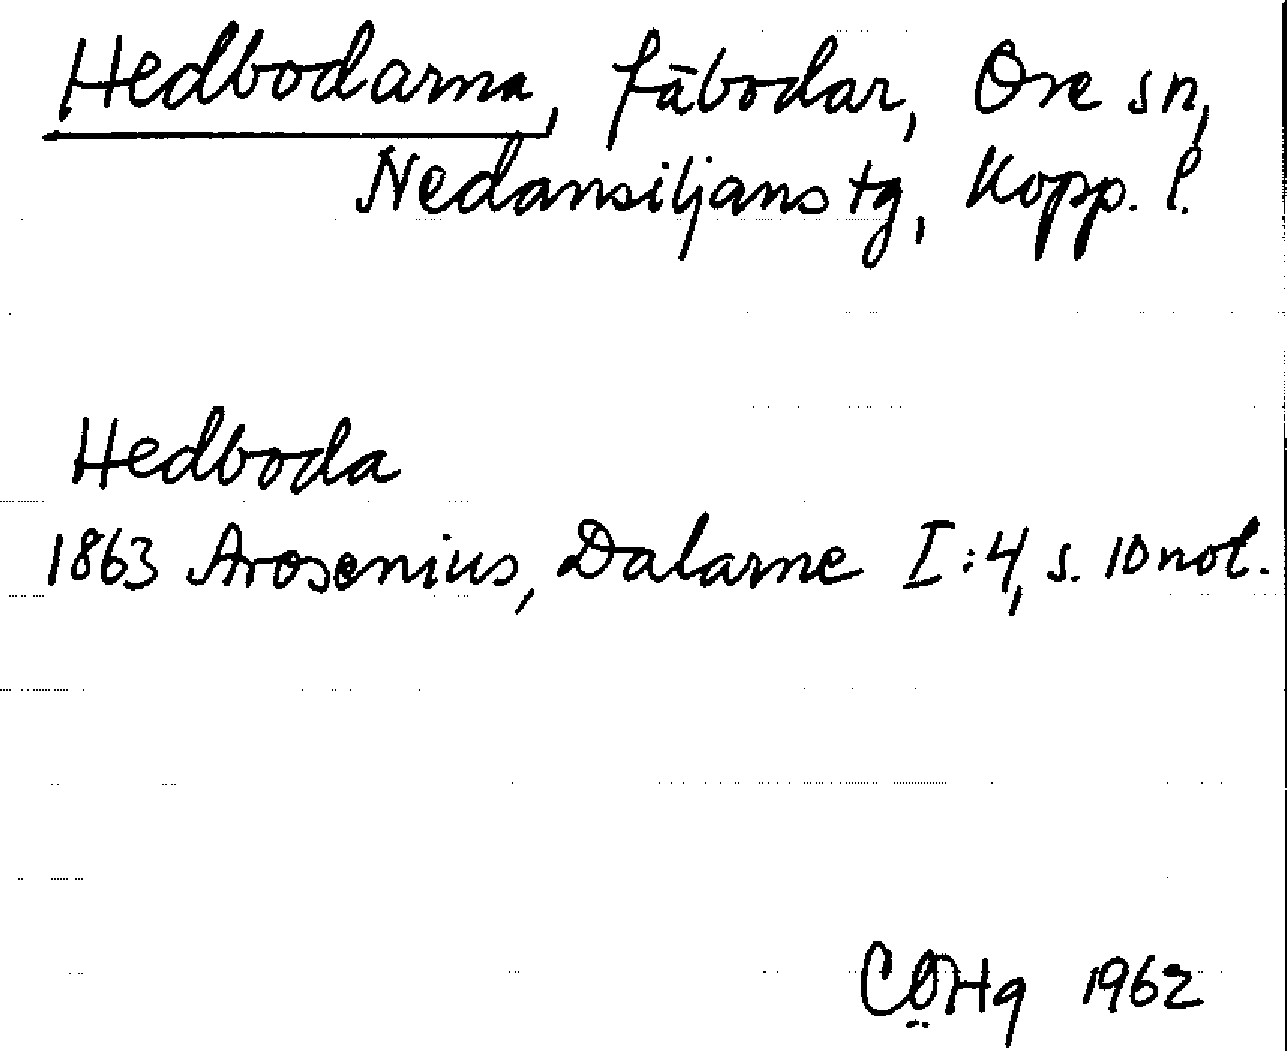 Hedbodarna, fäbodar, Ore sn,
Nedansiljans tg, Kopp. l.
Hedboda
1863 Arosenius, Dalarne I:4, s. 10 not.
CÖHg 1962